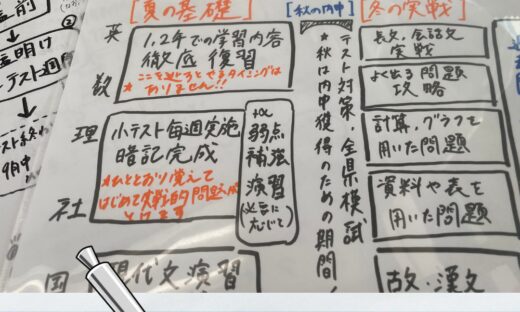 [夏の基礎]
英
数
1,2年での学習内容
徹底復習
★ここを逃すとやるタイミングは
ありません!!
理
社
小テスト毎週実施
暗記完成
★ひととおり覚えて
はじめて実戦的問題
+α
弱点
補強
演習
(必要に
応じて)
国
現代文演習
[秋の内申]
テスト対策、全県模試
★秋は内申獲得のための期間!
[冬の実戦]
長文、会話文
実戦
よく出る問題
攻略
計算、グラフを
用いた問題
資料や表を
用いた問題
古文・漢文